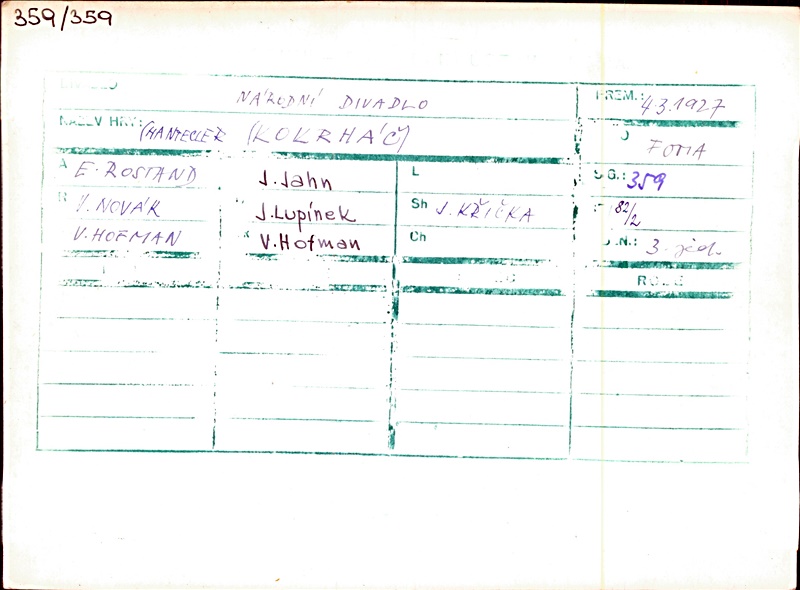 359/359
NÁRODNÍ DIVADLO
PREM.: 4.3.1927
NÁZEV HRY: CHANTECLER (KOKRHÁČ)
FOTIA
A E. ROSTAND J. Jahn L SG.: 359
R J. NOVÁK J. Lupínek Sh J. KŘIČKA 82/2
V. HOFMAN V. Hofman Ch .N.: 3. jed.
ROLE